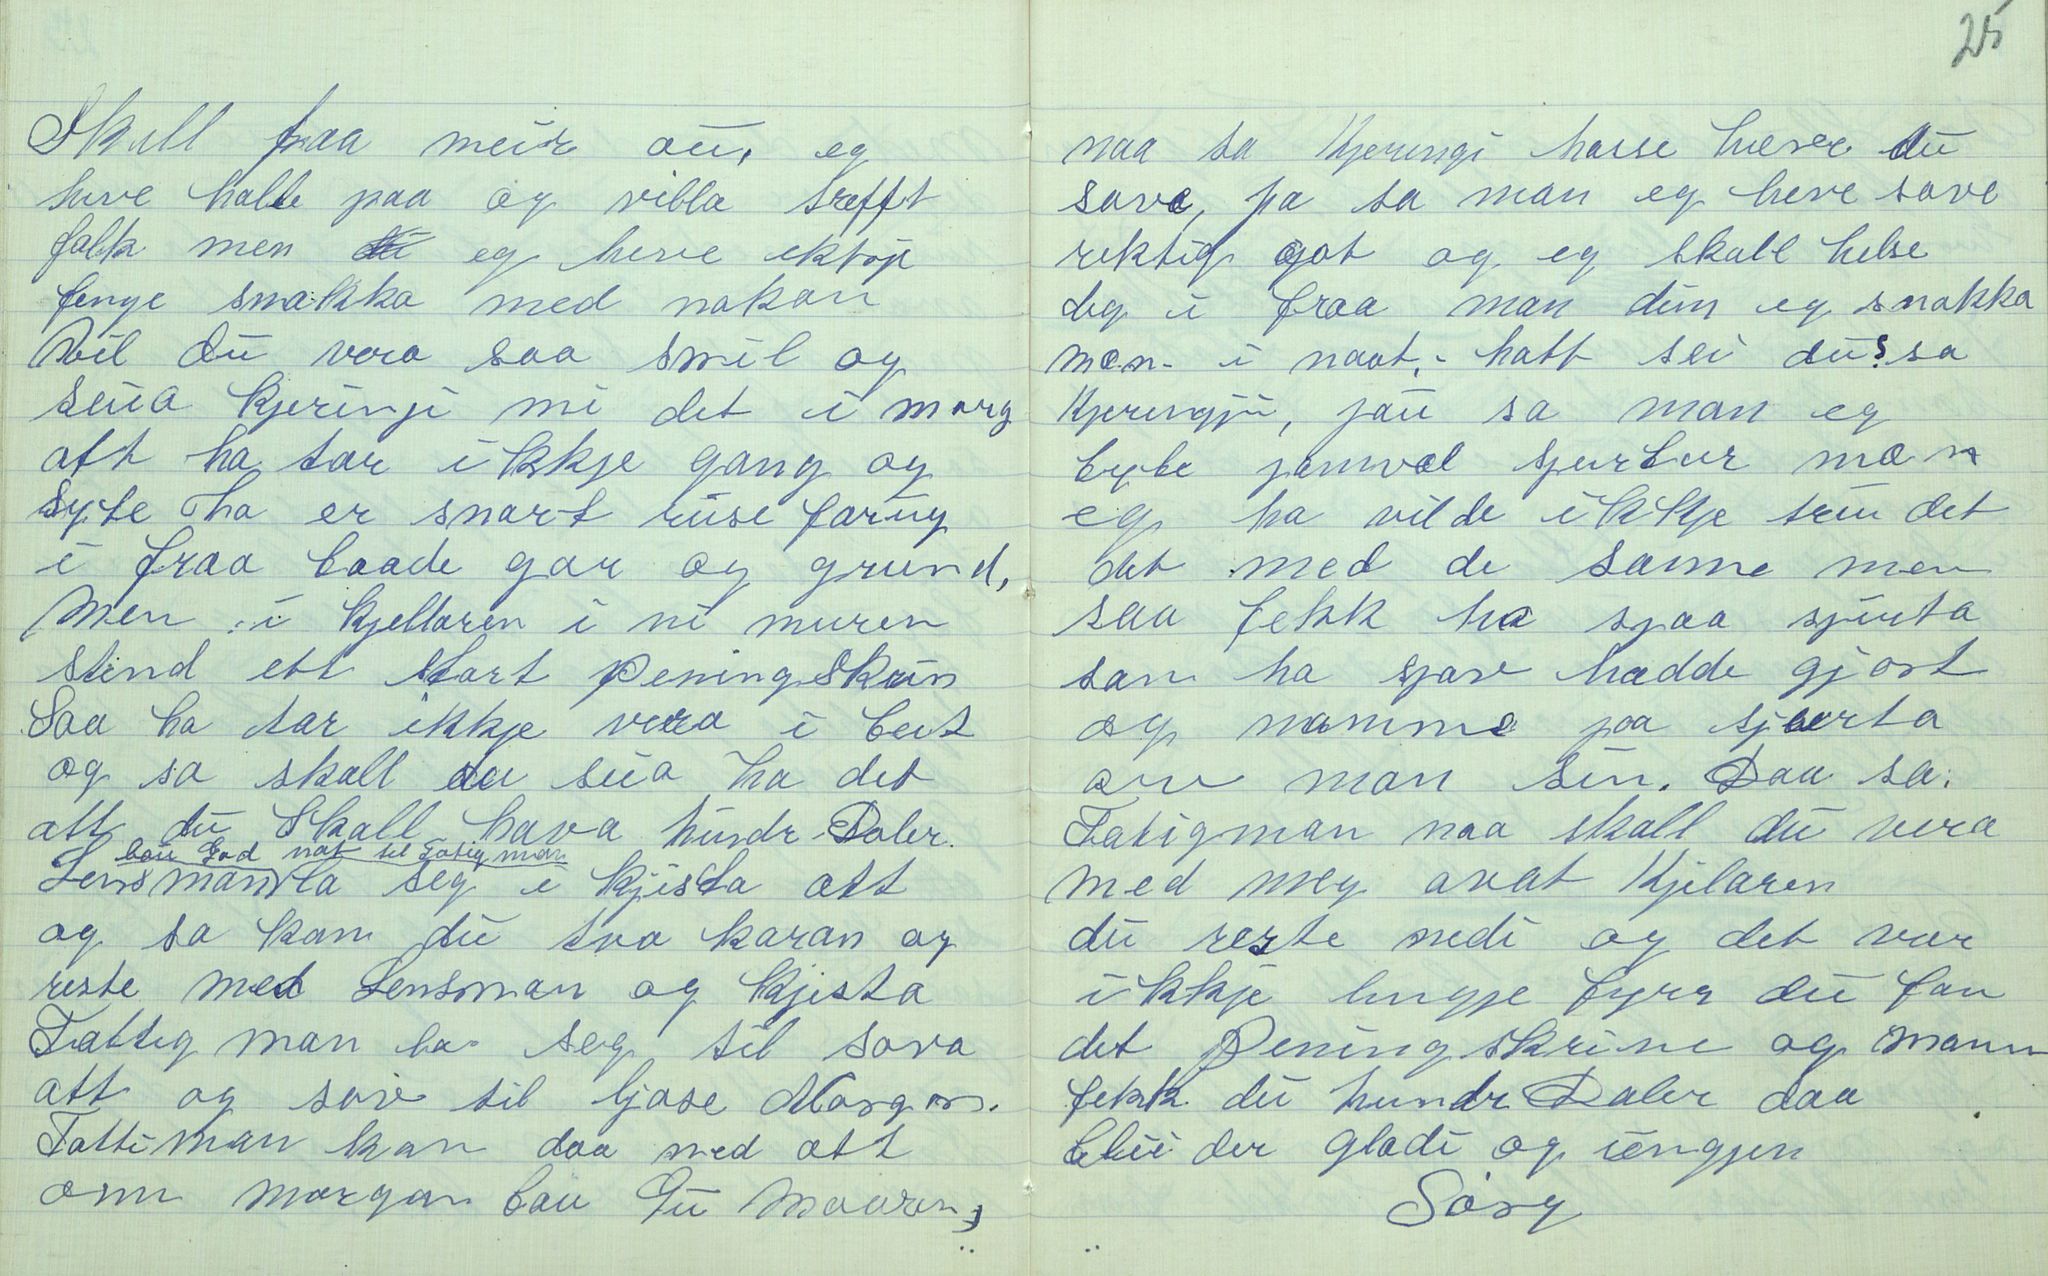 Skull fraa meir au, eg
heve halle paa og villa trefft
falk men eg heve ektøje
fenge snakka med nokan
Vil du vera saa snil og
seiia kjeringi mi det i morg
att ha tar ikkje gang og
syte ha er snart riise farug
i fraa baade gar og grund,
Men i kjellaren i ni muren
stend ett start Pening Skrin
Saa ha tar ikkje vera i beit
og sa skall du seia ha det
att du Skall hava hundr Daler.
bau God nat til Fatig man
Lensman la seg i kjista att
og sa kam du tvo karan og
reste med Lensman og kjista
Fattig man la seg til sova
att og sov til ljose Morgon.
Fatti man kan daa ned att
om morgan bau Gu Mooren,
25
naa sa Kjeringi hosse heve du
sove, ja sa man eg heve sove
rektig got og eg skall helse
deg i fraa man din eg snakka
man i naat, hatt sei du sa
Kjeringji, jau sa man eg
byte jamvel sjurtur man
eg ha vilde ikkje tru det
det med de samme men
saa fekk ha sjaa sjurta
san ha sjøv hadde gjort
og namme paa sjurta
av man sin. Daa sa
Fatigman naa skall du vera
med meg avat Kjelaren
du reste nedi og det var
ikkje lengje fyrr du fan
det Pening skrine og mann
fekk du hundr Daler daa
blei der glade og iengjen
Sorg